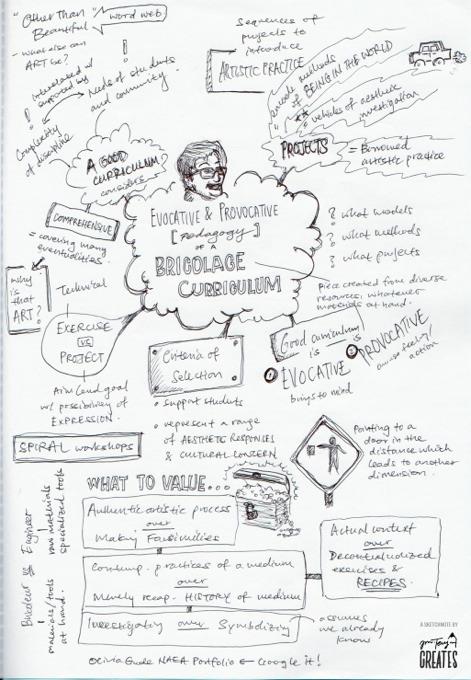 "Other Than Beautiful"
word web
- what else can
ART be?
interrelated &
supported by
Needs of students
and community.
Complexity
of discipline
A GOOD
CURRICULUM
considers
COMPREHENSIVE
= covering many
eventualities.
sequences of
projects to
introduce
ARTISTIC PRACTICE
encode methods
of BEING IN THE WORLD
vehicles of aesthetic
investigation
PROJECTS
= Borrowed
artistic practice
EVOCATIVE & PROVOCATIVE
[pedagogy]
OF A
BRICOLAGE
CURRICULUM
? what models
? what methods
? what projects
created from diverse
resources, whatever
materials at hand.
why
is
that
ART?
Technical
EXERCISE
VS
PROJECT
Aim/end goal
w/ possibility of
EXPRESSION.
Criteria of
Selection
• support students
• represent a range
of AESTHETIC RESPONES
& CULTURAL CONCERN
Good curriculum
is
is
EVOCATIVE
brings to mind
PROVOCATIVE
arouse feeling/
action
SPIRAL workshops
Pointing to a
door in the
distance which
leads to another
dimension.
Bricoleur VS Engineer
raw materials
specialized tools
materials/tools
at hand.
WHAT TO VALUE...
Authentic artistic process
over
Making Facsimilies
Contemp. practices of a medium
over
Merely recap. HISTORY of medium
Investigating over Symbolizing
assumes
we already
know
Actual context
over
Decontextualized
exercises &
RECIPES.
Olivia Gude NAEA Portfolio ← Google it!
A SKETCHNOTE BY
CREATES